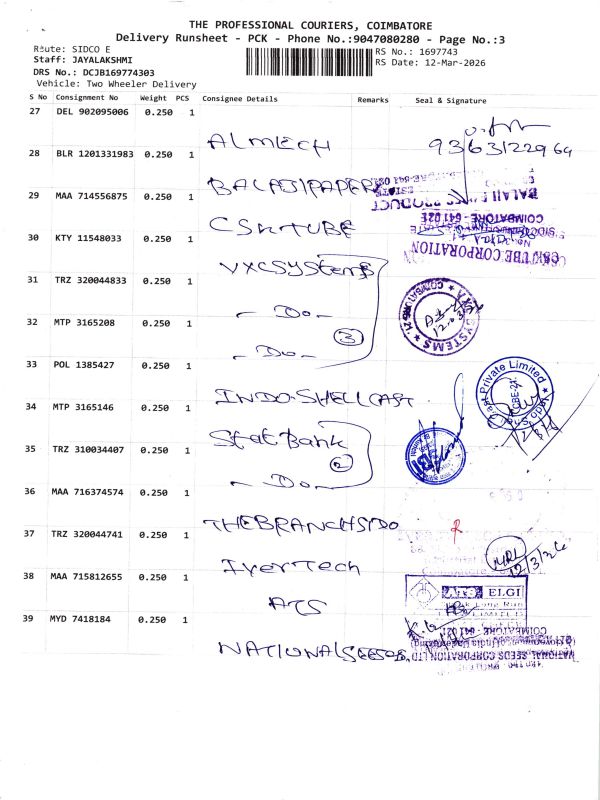 THE PROFESSIONAL COURIERS, COIMBATORE
Delivery Runsheet - PCK - Phone No.:9047080280 - Page No.:3
Route: SIDCO E
RS No.: 1697743
Staff: JAYALAKSHMI
RS Date: 12-Mar-2026
DRS No.: DCJB169774303
Vehicle: Two Wheeler Delivery
S No Consignment No Weight PCS Consignee Details Remarks Seal & Signature
27 DEL 902095006 0.250 1
ALMECH
9363122964
28 BLR 1201331983 0.250 1
BALAJI PAPER
29 MAA 714556875 0.250 1
CSK TUBE
COIMBATORE - 641 021
30 KTY 11548033 0.250 1
CSK TUBE CORPORATION
VXCSYSTEMS
31 TRZ 320044833 0.250 1
- Do -
SYSTEMS
32 MTP 3165208 0.250 1
3
- Do -
33 POL 1385427 0.250 1
Private Limited
INDO-SHELL CAST
34 MTP 3165146 0.250 1
Stat Bank
35 TRZ 310034407 0.250 1
2
36 MAA 716374574 0.250 1
- Do -
THE BRANCH SIDO
37 TRZ 320044741 0.250 1
12/3/26
IyerTech
38 MAA 715812655 0.250 1
ELGI
ATS
39 MYD 7418184 0.250 1
COIMBATORE - 641 021
NATIONAL SEEDS
NATIONAL SEEDS CORPORATION LTD